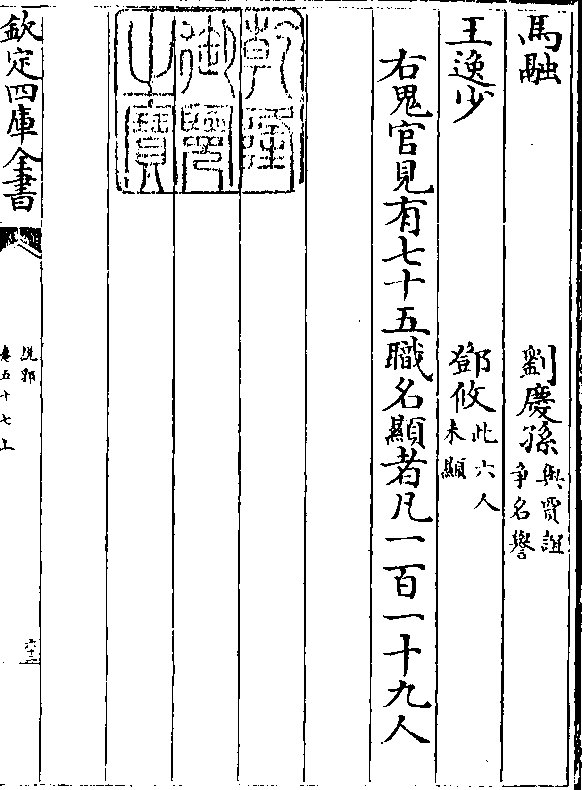 馬融　劉慶孫與賈誼爭名譽
王逸少　鄧攸此六人未顯
右鬼官見有七十五職名顯者凡一百一十九人
乾隆御覽之寶
欽定四庫全書
說郛
卷五十七上
六十二